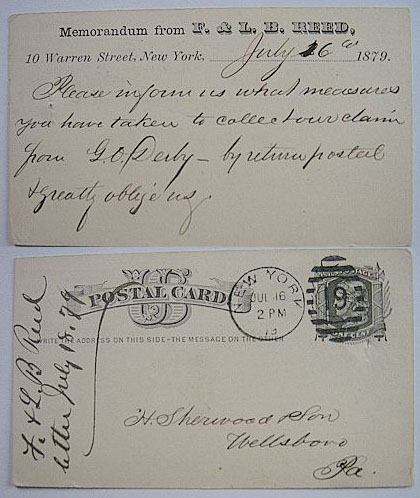 Memorandum from F. & L. B. REED,
10 Warren Street, New York, July 16th 1879.
Please inform us what measures
you have taken to collect our claim
from G.O. Derby – by return postal
& greatly oblige us.
POSTAL CARD.
WRITE THE ADDRESS ON THIS SIDE–THE MESSAGE ON THE OTHER
NEW YORK
JUL 16
2 PM
79
9
H. Sherwood & Son
Wellsboro
Pa.
F. & L. B Reed
letter July 18. 79